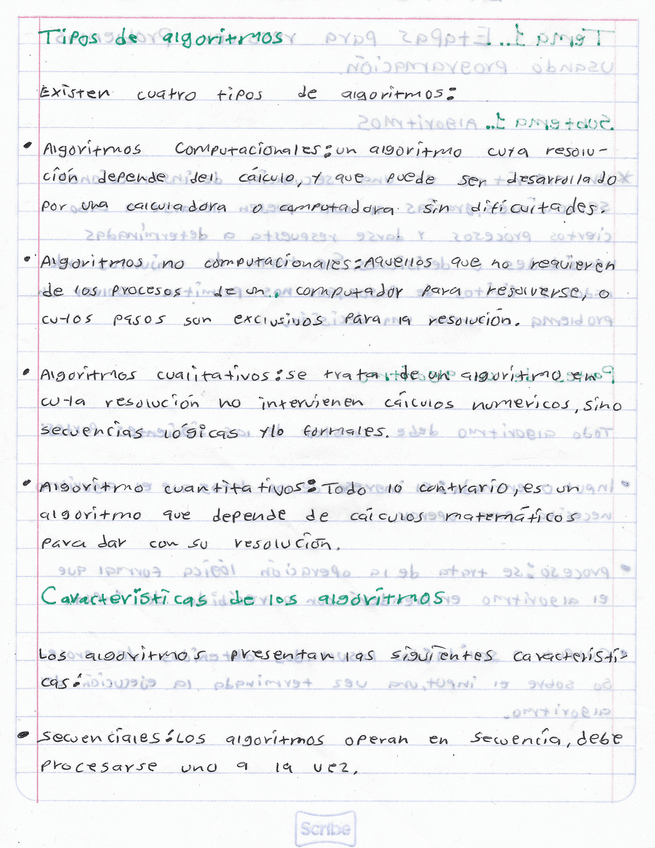 Tipos de algoritmos
Existen cuatro tipos de algoritmos:
• Algoritmos Computacionales: un algoritmo cuya resolu-
ción depende del cálculo, y que puede ser desarrollado
por una calculadora o computadora sin dificultades.
• Algoritmos no computacionales: Aquellos que no requieren
de los procesos de un computador para resolverse, o
cuyos pasos son exclusivos para la resolución.
• Algoritmos cualitativos: se trata de un algoritmo en
cuya resolución no intervienen cálculos numericos, sino
secuencias lógicas y/o formales.
• Algoritmo cuantitativos: Todo lo contrario, es un
algoritmo que depende de cálculos matemáticos
para dar con su resolución.
Características de los algoritmos
Los algoritmos presentan las siguientes característi-
cas:
• Secuenciales: Los algoritmos operan en secuencia, debe
procesarse uno a la vez.
Scribe